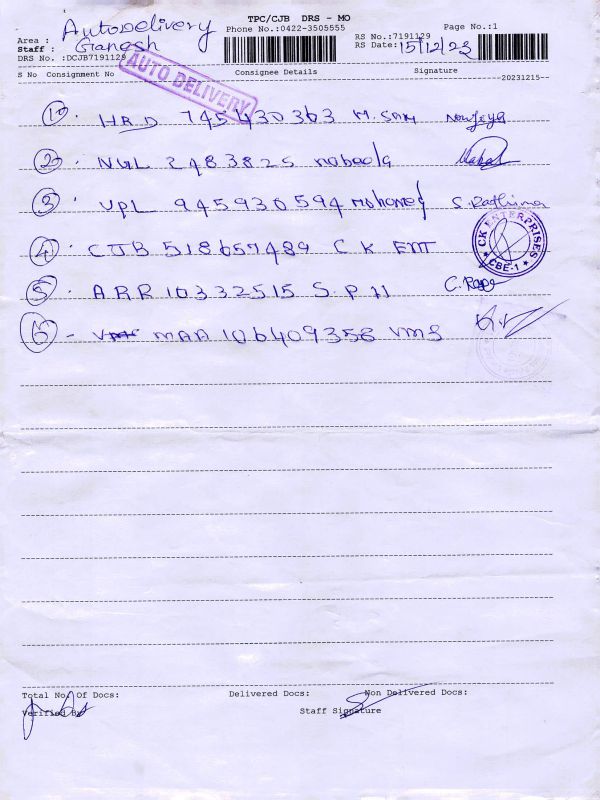 TPC/CJB DRS - MO
Phone No.:0422-3505555
Page No.:1
Area : AutoDelivery
RS No.:7191129
Staff : Ganesh
RS Date: 15/12/23
DRS No. :DCJB7191129
AUTO DELIVERY
S No Consignment No Consignee Details Signature
20231215
1. HRD 745430363 M. Sam
2. NGL 2483825
3. VPL 945930594 Mohamed S. Radhima
4. CJB 518657489 C K ENT
CK ENTERPRISES
CBE-1
5. ARR 10332515 S.P.H
6 - MAA 106409358 VMS
Total No. Of Docs: Delivered Docs: Non Delivered Docs:
Verified By Staff Signature